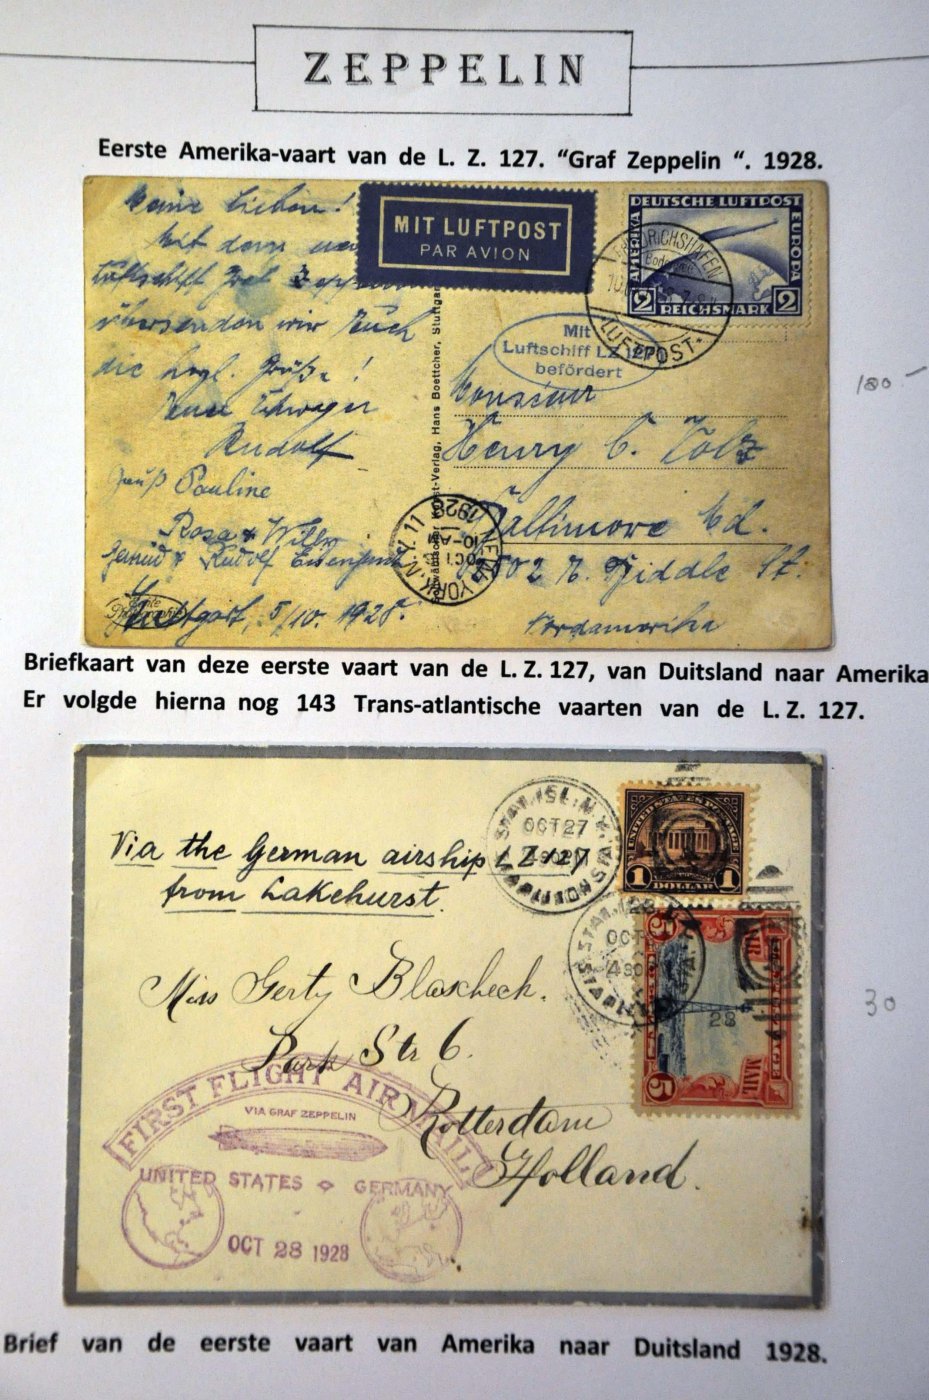 ZEPPELIN
Eerste Amerika-vaart van de L. Z. 127. “Graf Zeppelin “. 1928.
Meine Lieben!
Mit dem
Luftschiff Graf Zeppelin
übersenden wir Euch
die hrzl. Grüße!
Euer Schwager
Rudolf
Gruß Pauline
Rosa & Willy
& Rudolf
Stuttgart, 5/10. 1928.
MIT LUFTPOST
PAR AVION
DEUTSCHE LUFTPOST
AMERIKA
EUROPA
2 REICHSMARK 2
FRIEDRICHSHAFEN
LUFTPOST
Mit
Luftschiff LZ 127
befördert
Hans Boettcher, Stuttgart
Monsieur
Henry C. Volz
Baltimore Md.
Biddle St.
Nordamerika
NEW YORK, N.Y. 11
OCT
10-AM
1928
180.-
Briefkaart van deze eerste vaart van de L. Z. 127, van Duitsland naar Amerika
Er volgde hierna nog 143 Trans-atlantische vaarten van de L. Z. 127.
Via the German airship LZ 127
from Lakehurst.
OCT 27
UNITED STATES POSTAGE
1 DOLLAR 1
5 AIR
5 MAIL
28
Miss Gerty Blascheck.
Park Str 6.
Rotterdam
Holland.
FIRST FLIGHT AIR MAIL
VIA GRAF ZEPPELIN
UNITED STATES GERMANY
OCT 28 1928
30
Brief van de eerste vaart van Amerika naar Duitsland 1928.